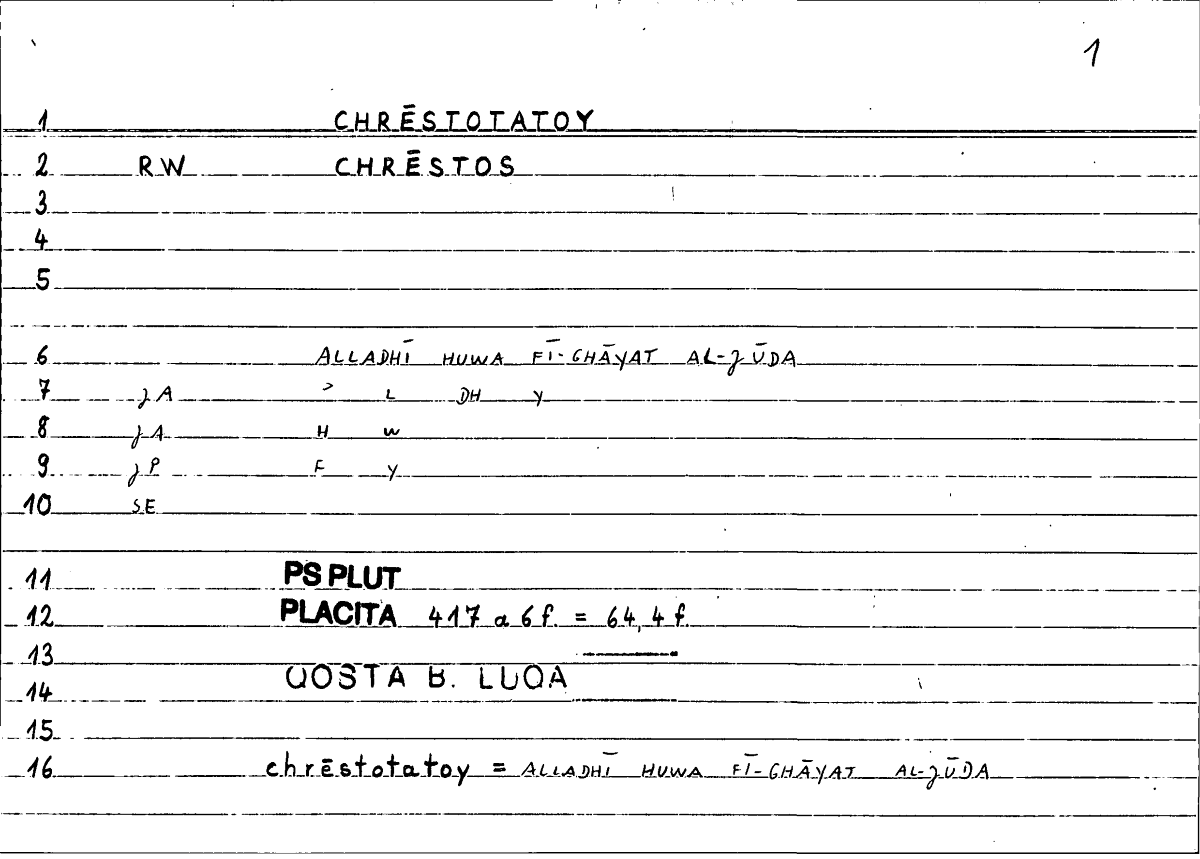 1
1 CHRĒSTOTATOY
2 RW CHRĒSTOS
3
4
5
6 ALLADHĪ HUWA FĪ-GHĀYAT AL-JŪDA
7 JA ʾ L DH Y
8 JA H W
9 JP F Y
10 SE
11 PS PLUT
12 PLACITA 417 a 6 f. = 64, 4 f.
13
14 QOSTA B. LUQA
15
16 chrēstotatoy = ALLADHĪ HUWA FĪ-GHĀYAT AL-JŪDA